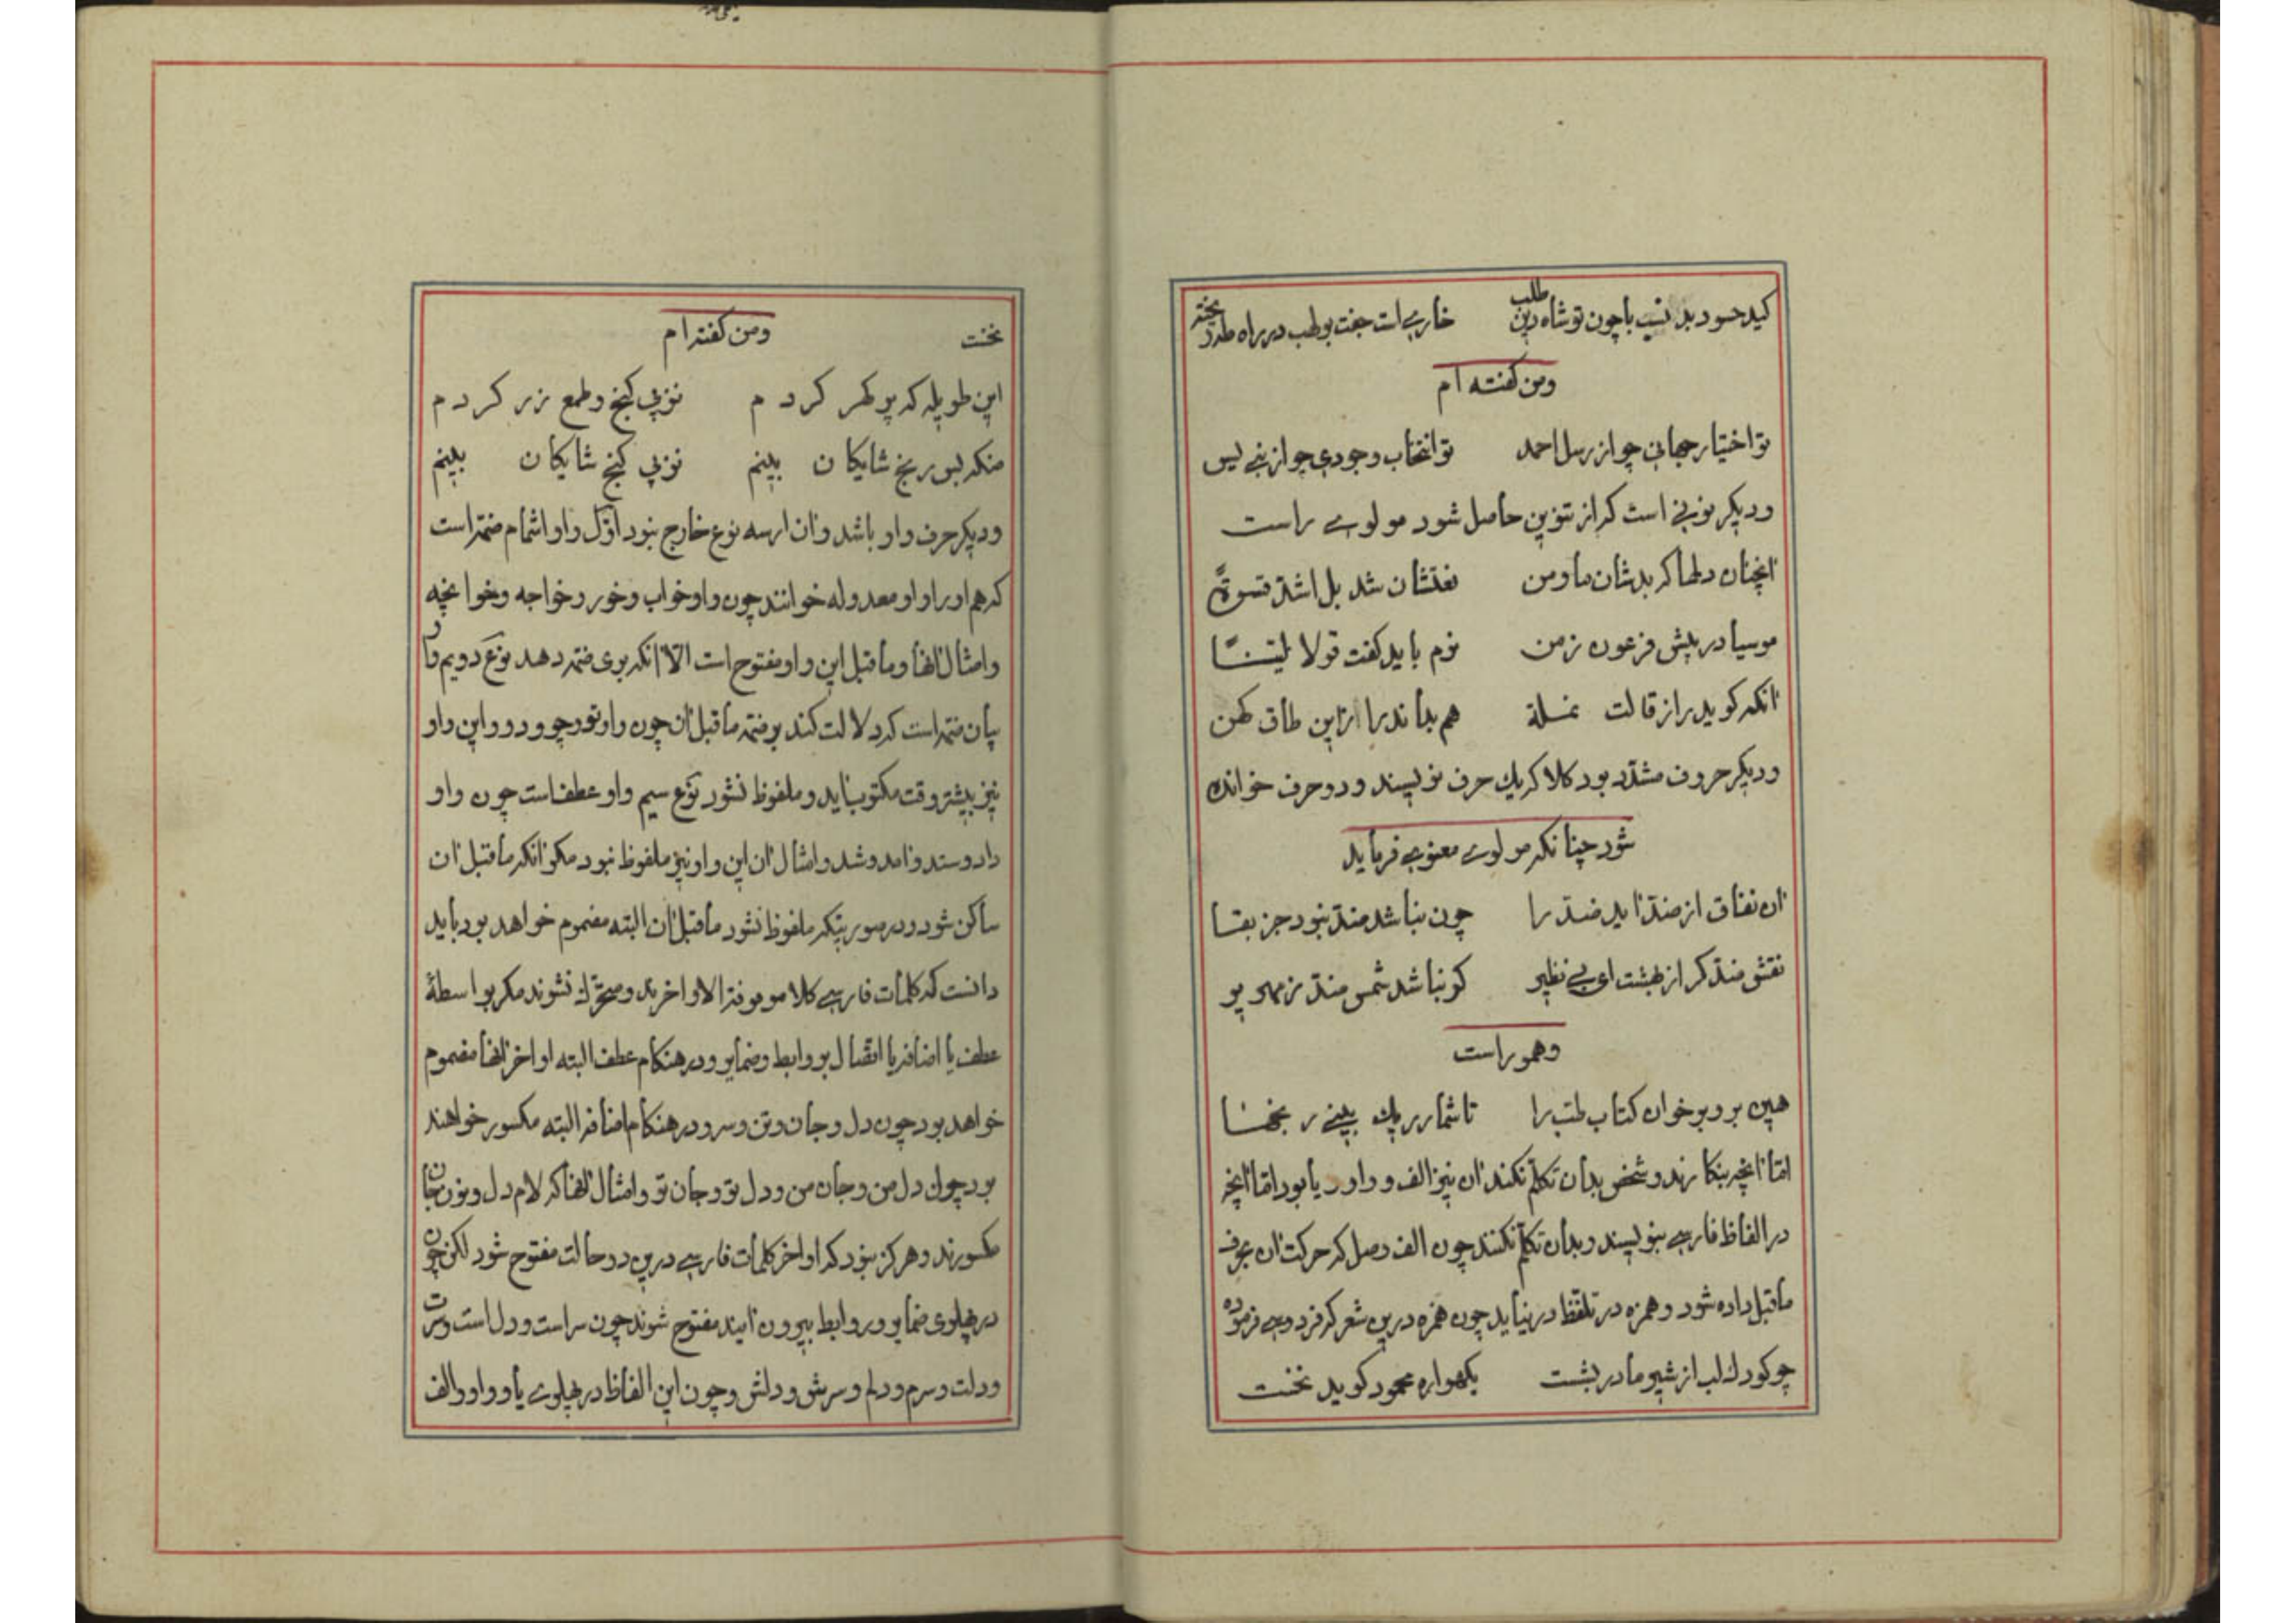 کید حسود بد نسب با چون تو شاه دین طلب خاری است جفت بولهب در راه طه ریخته
ومن کفته ام
تو اختیار جهانی چو از رسل احمد تو انتخاب وجودی چو از نبی یس
ودیکر نونی است که از تنوین حاصل شود مولوی راست
انچنان دلها که بدشان ما ومن نعتشان شد بل اشدّ قسوةً
موسیا در پیش فرعون زمن نرم باید کفت قولا لیّنًا
انکه کوید راز قالت نملة هم بداند راز این طاق کهن
ودیکر حروف مشدّد بود کلا که یك حرف نویسند ودو حرف خوانده
شود چنانکه مولوی معنوی فرماید
ان نفاق از ضدّ اید ضدّ را چون نباشد ضدّ نبود جز بقا
نفی ضدّ کرد از بهشت ای بی نظیر کو نباشد شمس ضدّ زمهریر
وهمو راست
هین برو برخوان کتاب طبّ را تا شمار ریك بینی رنجها
امّا انچه بنکارند وشخص بدان تکلّم نکند ان نیز الف و واو ویا بود امّا انچه
در الفاظ فارسی بنویسند وبدان تکلّم نکنند چون الف وصل که حرکت ان بحرف
ماقبل داده شود وهمزه در تلفّظ در نیاید چون همزه درین شعر که فردوسی فرموده
چو کودك لب از شیر مادر بشست بکهواره محمود کوید نخست
نخست ومن کفته ام
این طویله که پر کهر کردم نزپی کنج وطمع زر کردم
منکه بس رنج شایکان بینم نزپی کنج شایکان بینم
ودیکر حرف واو باشد وان ازسه نوع خارج نبود اوّل واو اشمام ضمّه است
که هم اورا واو معدوله خوانند چون واو خواب وخور وخواجه وخوانچه
وامثال انها وماقبل این واو مفتوح است الّا انکه بوی ضمّه دهد نوع دویم واو
بیان ضمّه است که دلالت کند بر ضمّه ماقبل ان چون واو تو وچو ودو واین واو
نیز بیشتر وقت مکتوب باید وملفوظ نشود نوع سیم واو عطف است چون واو
داد وستد وامد وشد وامثال ان این واو نیز ملفوظ نبود مکر انکه ماقبل ان
ساکن شود ودر صورتیکه ملفوظ نشود ماقبل ان البته مضموم خواهد بود باید
دانست که کلمات فارسی کلا موقوفة الاواخرند ومتحرّك نشوند مکر بواسطهٔ
عطف یا اضافه یا اتّصال بروابط وضمایر ودر هنکام عطف البته اواخر انها مضموم
خواهد بود چون دل وجان وتن وسر ودر هنکام اضافه البته مکسور خواهند
بود چون دل من وجان من ودل تو وجان تو وامثال انها که لام دل ونون جان
مکسورند وهرکز نبود که اواخر کلمات فارسی درین دو حالت مفتوح شود لکن چون
در پهلوی ضمایر وروابط بیرون ایند مفتوح شوند چون سراست ودل است وسرت
ودلت وسرم ودلم وسرش ودلش وچون این الفاظ در پهلوی یا وواو والف